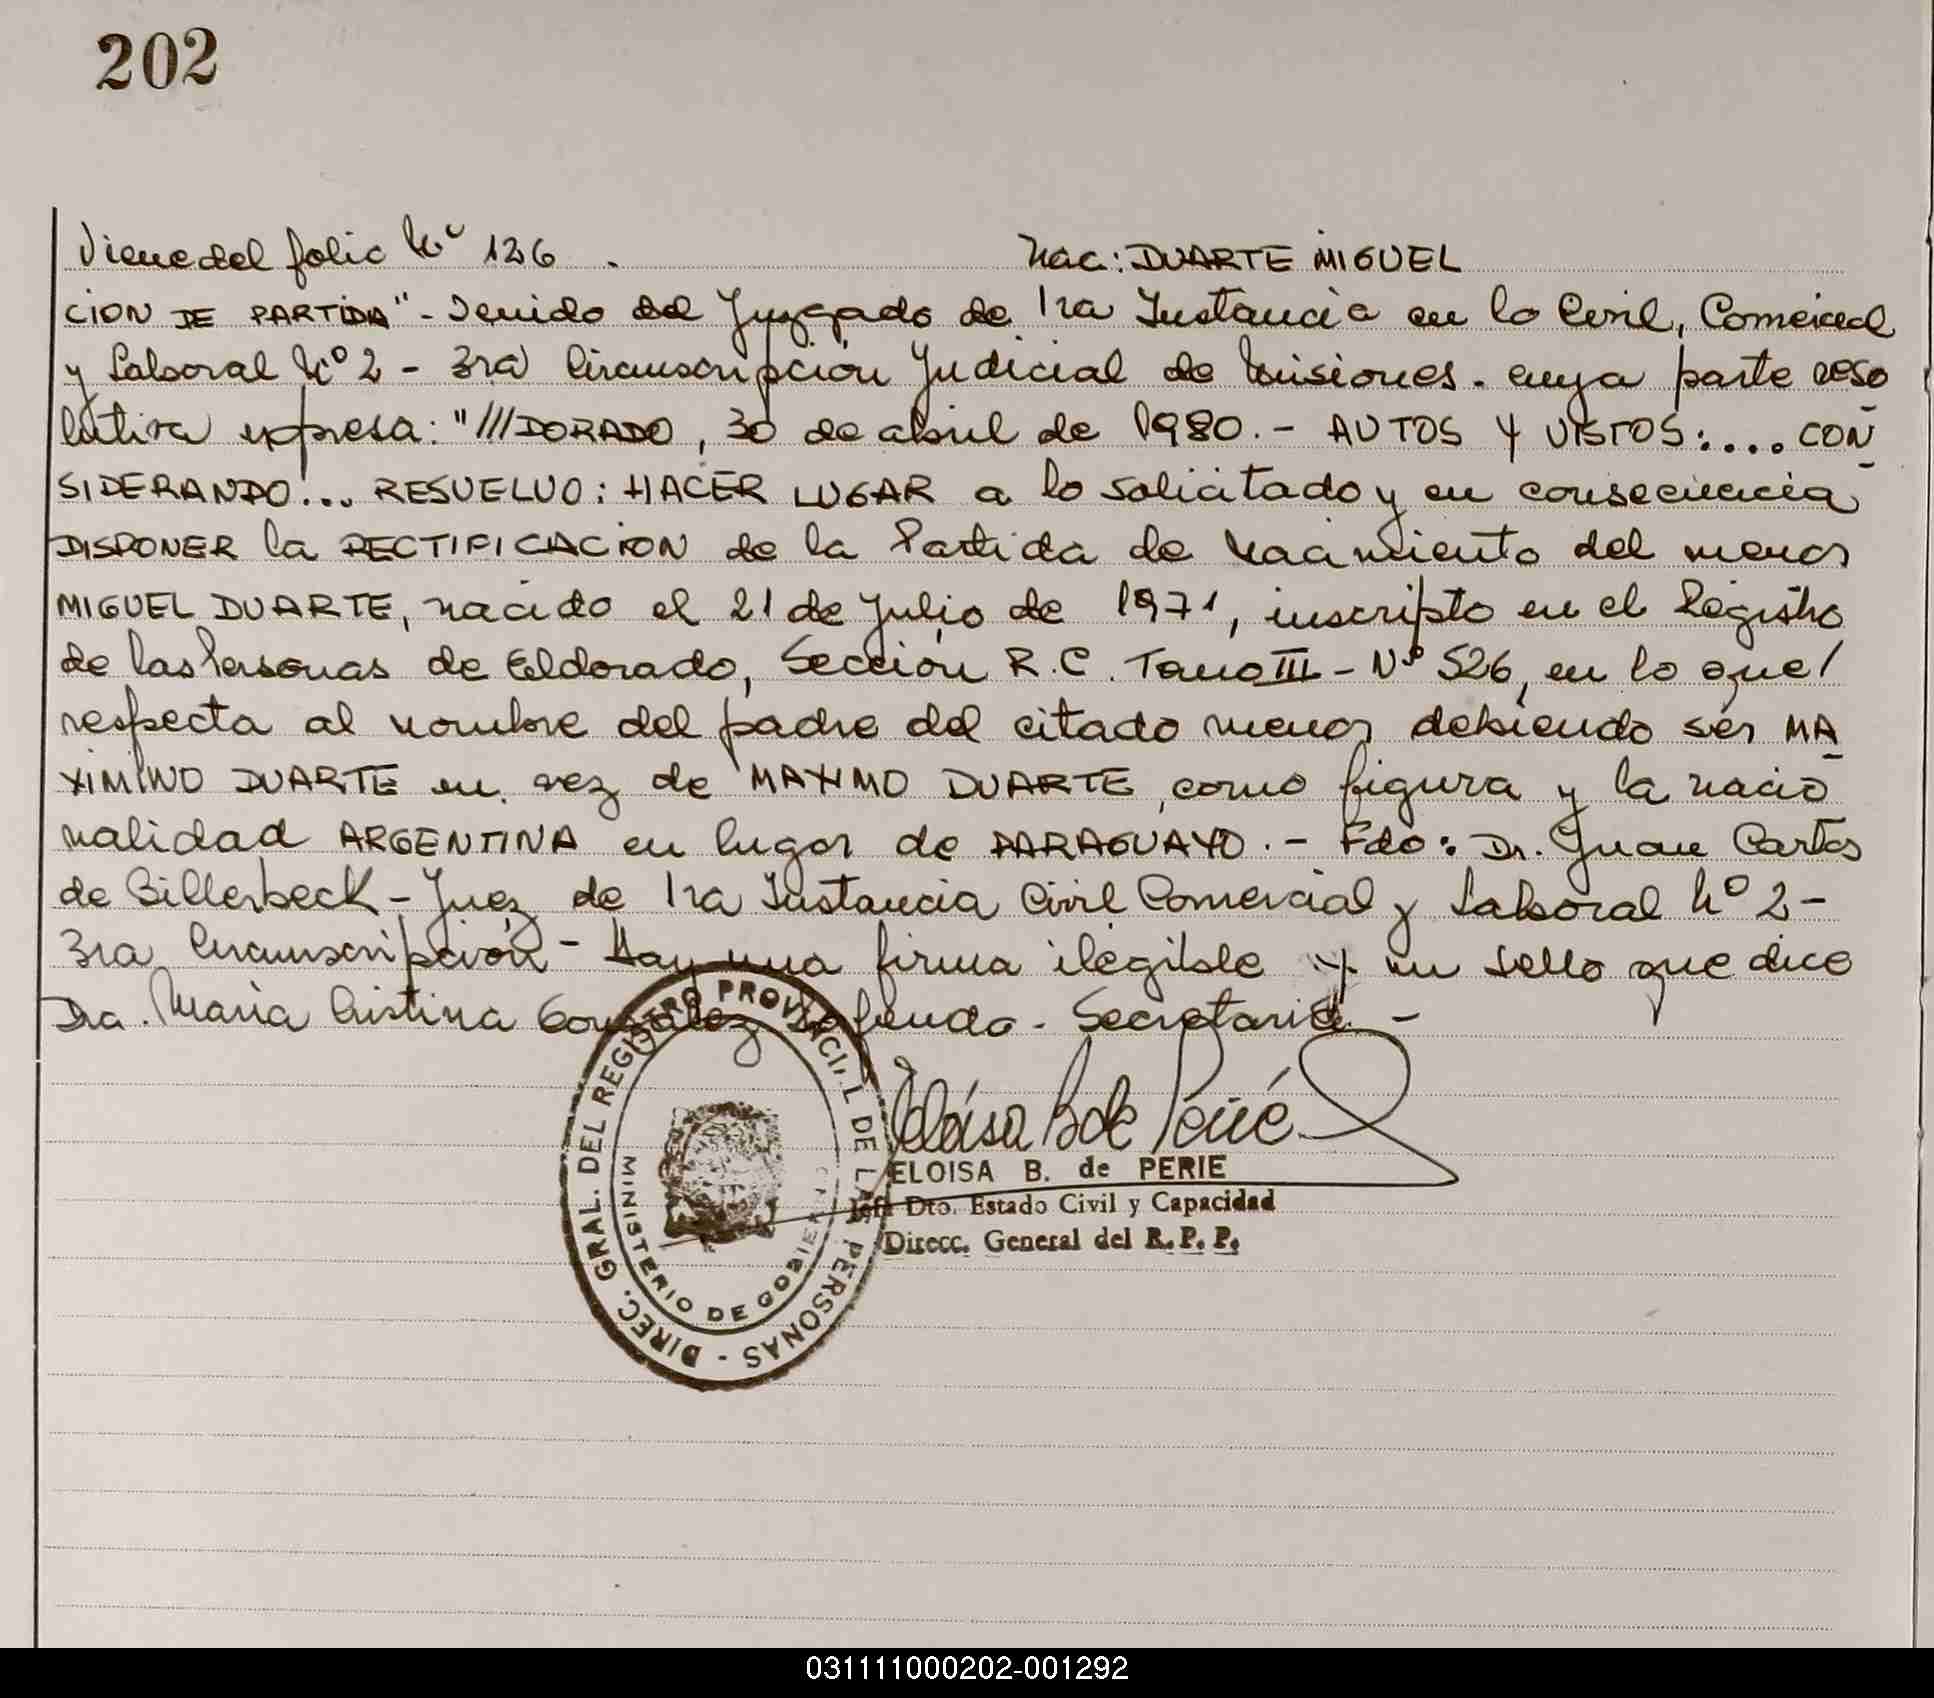 202
Viene del folio Nº 126. Nac: DUARTE MIGUEL
CION DE PARTIDA"- Venido del Juzgado de 1ra Instancia en lo Civil, Comercial
y Laboral Nº 2 - 3ra Circunscripción Judicial de Misiones. cuya parte reso
lutiva expresa: "///DORADO, 30 de abril de 1980.- AUTOS Y VISTOS:.... CON
SIDERANDO... RESUELVO: HACER LUGAR a lo solicitado y en consecuencia
DISPONER la RECTIFICACION de la Partida de Nacimiento del menor
MIGUEL DUARTE, nacido el 21 de Julio de 1971, inscripto en el Registro
de las Personas de Eldorado, Sección R.C. Tomo III - Nº 526, en lo que/
respecta al nombre del padre del citado menor debiendo ser MA
XIMINO DUARTE en vez de MAXIMO DUARTE, como figura y la nacio
nalidad ARGENTINA en lugar de PARAGUAYO.- Fdo: Dr. Juan Carlos
de Billerbeck - Juez de 1ra Instancia Civil Comercial y Laboral Nº 2 -
3ra Circunscripción - Hay una firma ilegible y un sello que dice
Dra. María Cristina González - Secretaria. -
DIREC. GRAL. DEL REGISTRO PROVINCIAL DE LAS PERSONAS -
MINISTERIO DE GOBIERNO
Eloísa B de Perié
ELOISA B. de PERIE
Jefa Dto. Estado Civil y Capacidad
Direcc. General del R. P. P.
031111000202-001292